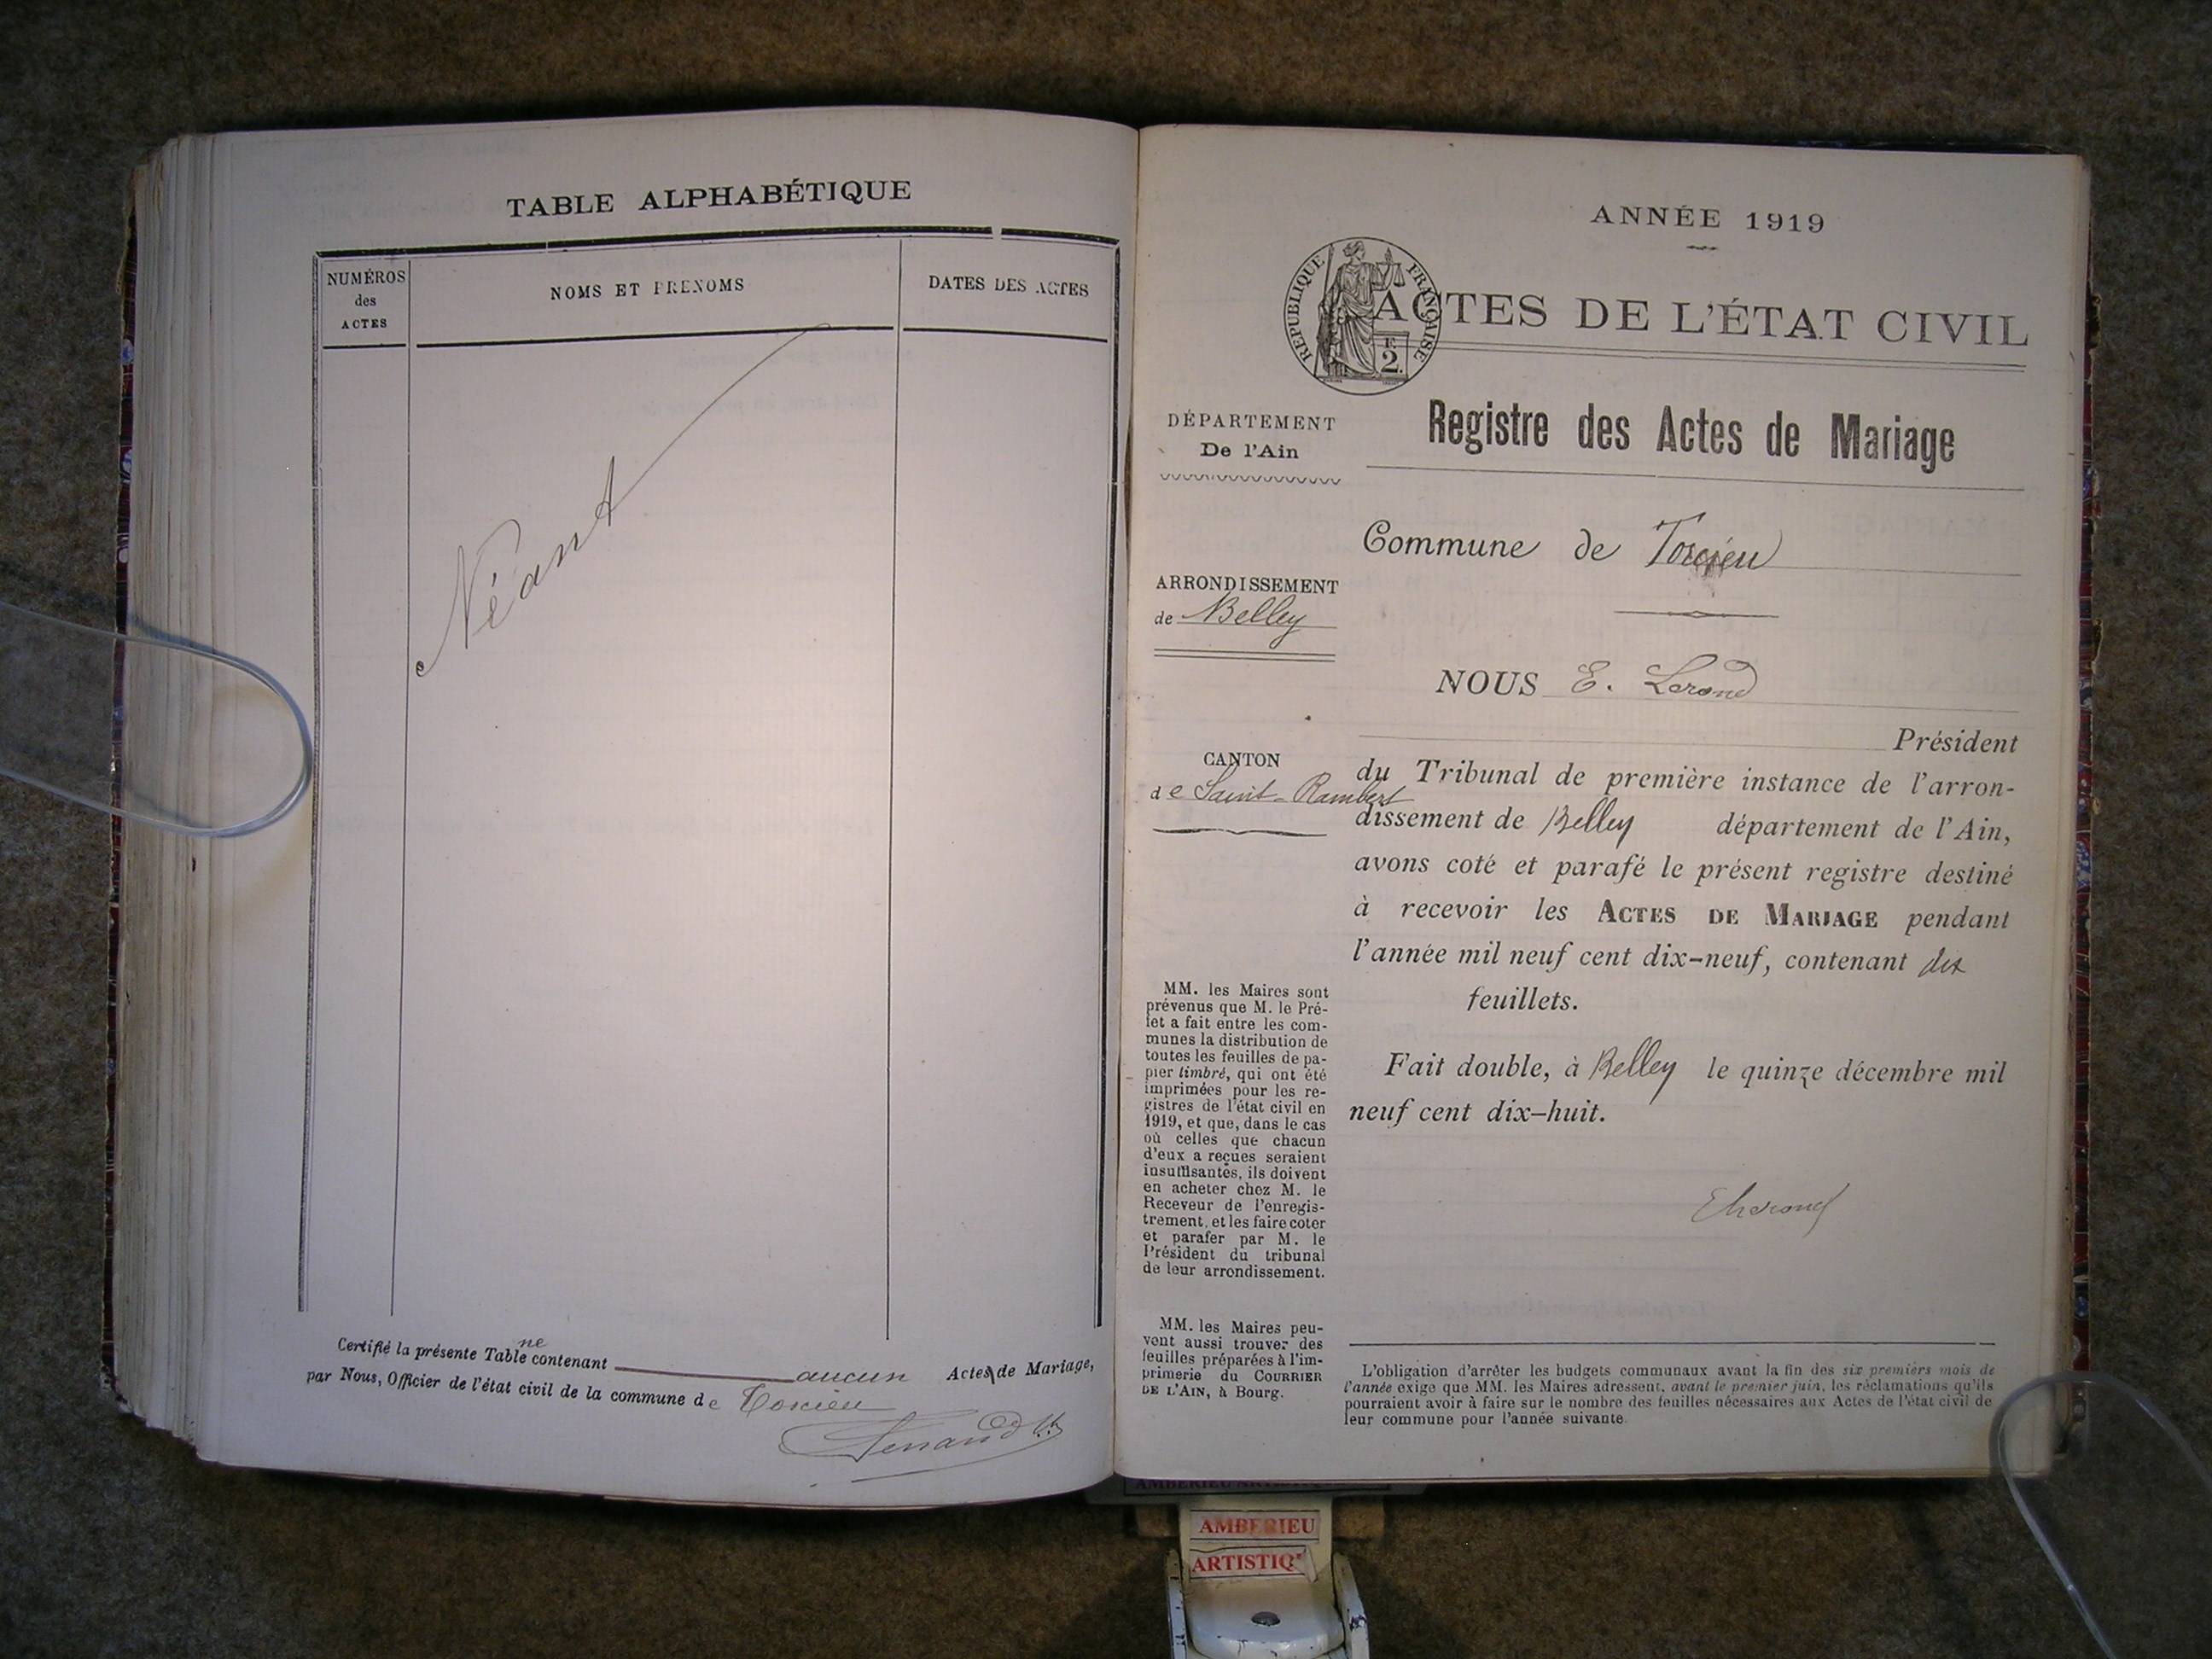 TABLE ALPHABÉTIQUE
NUMÉROS
des
ACTES
NOMS ET PRENOMS
DATES DES ACTES
Néant
ne
Certifié la présente Table contenant aucun Actes de Mariage,
par Nous, Officier de l'état civil de la commune de Torcieu
ANNÉE 1919
RÉPUBLIQUE FRANÇAISE
2
ACTES DE L'ÉTAT CIVIL
DÉPARTEMENT
De l'Ain
ARRONDISSEMENT
de Belley
CANTON
de Saint-Rambert
MM. les Maires sont
prévenus que M. le Pré-
fet a fait entre les com-
munes la distribution de
toutes les feuilles de pa-
pier timbré, qui ont été
imprimées pour les re-
gistres de l'état civil en
1919, et que, dans le cas
où celles que chacun
d'eux a reçues seraient
insuffisantes, ils doivent
en acheter chez M. le
Receveur de l'enregis-
trement, et les faire coter
et parafer par M. le
Président du tribunal
de leur arrondissement.
MM. les Maires peu-
vent aussi trouver des
feuilles préparées à l'im-
primerie du COURRIER
DE L'AIN, à Bourg.
Registre des Actes de Mariage
Commune de Torcieu
NOUS E. Lerond
Président
du Tribunal de première instance de l'arron-
dissement de Belley département de l'Ain,
avons coté et parafé le présent registre destiné
à recevoir les ACTES DE MARIAGE pendant
l'année mil neuf cent dix-neuf, contenant dix
feuillets.
Fait double, à Belley le quinze décembre mil
neuf cent dix-huit.
L'obligation d'arrêter les budgets communaux avant la fin des six premiers mois de
l'année exige que MM. les Maires adressent, avant le premier juin, les réclamations qu'ils
pourraient avoir à faire sur le nombre des feuilles nécessaires aux Actes de l'état civil de
leur commune pour l'année suivante.
AMBERIEU
ARTISTIQ